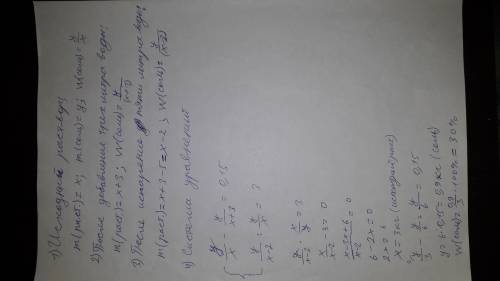 1) Исходный раствор:
m(раст.) = x; m(соль) = y; W(соль) = y/x
2) После добавления трех литра воды:
m(раст.) = x+3; W(соль) = y/(x+3)
3) После испарения пяти литра воды:
m(раст.) = x+3-5 = x-2; W(соль) = y/(x-2)
4) Система уравнений
{ y/x - y/(x+3) = 0,15
y/(x-2) : y/x = 3
y/(x-2) · x/y = 3
x/(x-2) - 3 = 0
(x-3x+6)/(x-2) = 0
6-2x = 0
2x = 6
x = 3кг (исходный раст)
y/3 - y/6 = y/6 = 0,15
y = 6·0,15 = 0,9кг (соль)
W(соль) = 0,9/3 · 100% = 30%